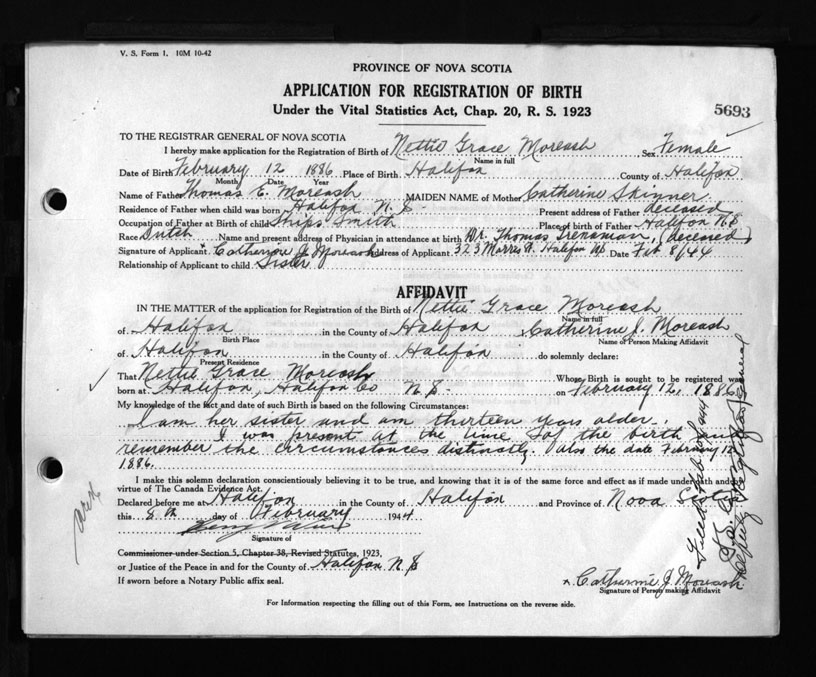 V. S. Form 1. 10M 10-42
PROVINCE OF NOVA SCOTIA
APPLICATION FOR REGISTRATION OF BIRTH
Under the Vital Statistics Act, Chap. 20, R. S. 1923
5693
TO THE REGISTRAR GENERAL OF NOVA SCOTIA
I hereby make application for the Registration of Birth of Nettie Grace Moreash Sex Female
Name in full
Date of Birth February 12 1886 Place of Birth Halifax County of Halifax
Month Date Year
Name of Father Thomas E. Moreash MAIDEN NAME of Mother Catherine Skinner
Residence of Father when child was born Halifax N.S. Present address of Father deceased
Occupation of Father at Birth of child Ships Smith Place of birth of Father Halifax N.S
Race Dutch Name and present address of Physician in attendance at birth Dr. Thomas Trenaman, (deceased)
Signature of Applicant x Catherine J. Moreash Address of Applicant 323 Morris St. Halifax NS. Date Feb 8/44
Relationship of Applicant to child Sister
AFFIDAVIT
IN THE MATTER of the application for Registration of the Birth of Nettie Grace Moreash
Name in full
of Halifax in the County of Halifax, Catherine J. Moreash
Birth Place Name of Person Making Affidavit
of Halifax in the County of Halifax do solemnly declare:
Present Residence
That Nettie Grace Moreash Whose Birth is sought to be registered was
born at Halifax, Halifax Co N.S. on February 12, 1886
My knowledge of the fact and date of such Birth is based on the following Circumstances:
I am her sister and am thirteen years older.
I was present at the time of the birth and
remember the circumstances distinctly. Also the date February 12
1886.
I make this solemn declaration conscientiously believing it to be true, and knowing that it is of the same force and effect as if made under oath and by
virtue of The Canada Evidence Act.
Declared before me at Halifax in the County of Halifax and Province of Nova Scotia
this 8th day of February 1944
Signature of
Commissioner under Section 5, Chapter 38, Revised Statutes, 1923,
or Justice of the Peace in and for the County of Halifax N.S
If sworn before a Notary Public affix seal.
x Catharine J. Moreash
Signature of Person making Affidavit
For Information respecting the filling out of this Form, see Instructions on the reverse side.
Deputy Registrar General